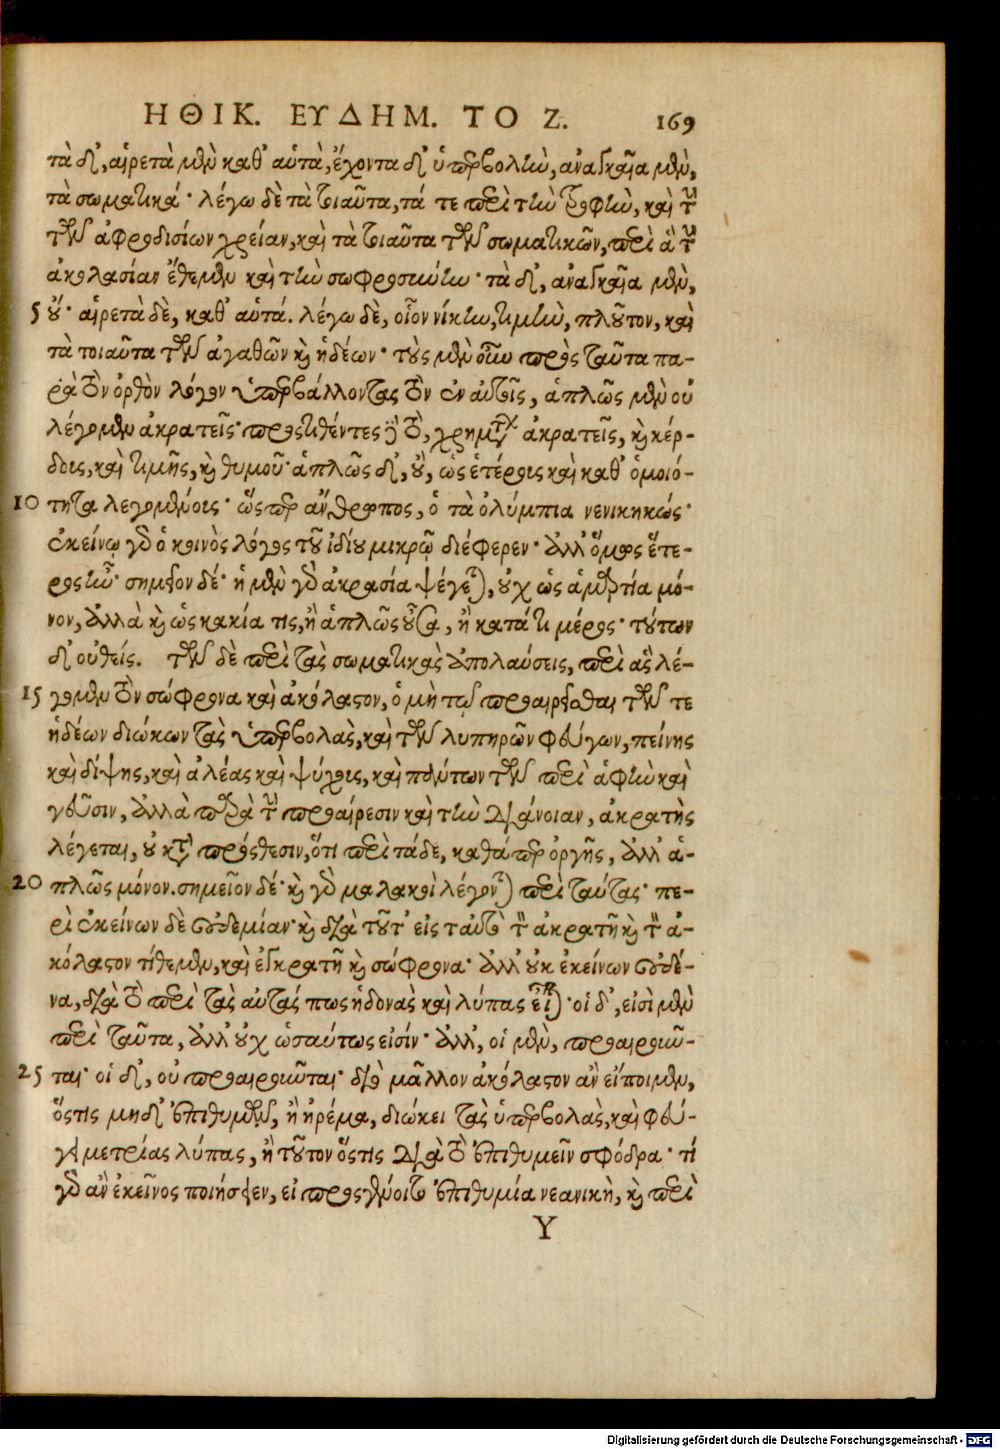 ΗΘΙΚ. ΕΥΔΗΜ. ΤΟ Ζ. 169
τὰ δ', αἱρετὰ μὲν καθ' αὑτὰ, ἔχοντα δ' ὑπερβολὴν, ἀναγκαῖα μὲν,
τὰ σωματικά· λέγω δὲ τὰ τοιαῦτα, τά τε περὶ τὴν τροφὴν, καὶ τὴν
τῶν ἀφροδισίων χρείαν, καὶ τὰ τοιαῦτα τῶν σωματικῶν, περὶ ἃ τὴν
ἀκολασίαν ἔθεμεν καὶ τὴν σωφροσύνην· τὰ δ', ἀναγκαῖα μὲν,
5 οὔ· αἱρετὰ δὲ, καθ' αὑτά. λέγω δὲ, οἷον νίκην, τιμὴν, πλοῦτον, καὶ
τὰ τοιαῦτα τῶν ἀγαθῶν καὶ ἡδέων· τοὺς μὲν οὖν πρὸς ταῦτα πα-
ρὰ τὸν ὀρθὸν λόγον ὑπερβάλλοντας τὸν ἐν αὐτοῖς, ἁπλῶς μὲν οὐ
λέγομεν ἀκρατεῖς· προςτιθέντες δὲ τὸ, χρημάτων ἀκρατεῖς, καὶ κέρ-
δους, καὶ τιμῆς, καὶ θυμοῦ· ἁπλῶς δ', οὔ, ὡς ἑτέρους καὶ καθ' ὁμοιό-
10 τητα λεγομένους· ὥςπερ ἄνθρωπος, ὁ τὰ ὀλύμπια νενικηκώς·
ἐκείνῳ γὰρ ὁ κοινὸς λόγος τοῦ ἰδίου μικρῷ διέφερεν· ἀλλ' ὅμως ἕτε-
ρος ἦν· σημεῖον δέ· ἡ μὲν γὰρ ἀκρασία ψέγεται, οὐχ ὡς ἁμαρτία μό-
νον, ἀλλὰ καὶ ὡς κακία τις, ἢ ἁπλῶς οὖσα, ἢ κατά τι μέρος· τούτων
δ' οὐθείς. τῶν δὲ περὶ τὰς σωματικὰς ἀπολαύσεις, περὶ ἃς λέ-
15 γομεν τὸν σώφρονα καὶ ἀκόλαστον, ὁ μὴ τῷ προαιρεῖσθαι τῶν τε
ἡδέων διώκων τὰς ὑπερβολὰς, καὶ τῶν λυπηρῶν φεύγων, πείνης
καὶ δίψης, καὶ ἀλέας καὶ ψύχους, καὶ πάντων τῶν περὶ ἁφὴν καὶ
γεῦσιν, ἀλλὰ παρὰ τὴν προαίρεσιν καὶ τὴν διάνοιαν, ἀκρατὴς
λέγεται, οὐ κατὰ πρόςθεσιν, ὅτι περὶ τάδε, καθάπερ ὀργῆς, ἀλλ' ἁ-
20 πλῶς μόνον. σημεῖον δέ· καὶ γὰρ μαλακοὶ λέγονται περὶ ταύτας· πε-
ρὶ ἐκείνων δὲ οὐδεμίαν· καὶ διὰ τοῦτ' εἰς ταὐτὸ τὸν ἀκρατῆ καὶ τὸν ἀ-
κόλαστον τίθεμεν, καὶ ἐγκρατῆ καὶ σώφρονα· ἀλλ' οὐκ ἐκείνων οὐδέ-
να, διὰ τὸ περὶ τὰς αὐτάς πως ἡδονὰς καὶ λύπας εἶναι· οἱ δ', εἰσὶ μὲν
περὶ ταῦτα, ἀλλ' οὐχ ὡσαύτως εἰσίν· ἀλλ', οἱ μὲν, προαιροῦν-
25 ται· οἱ δ', οὐ προαιροῦνται· διὸ μᾶλλον ἀκόλαστον ἂν εἴποιμεν,
ὅςτις μηδ' ἐπιθυμῶν, ἢ ἠρέμα, διώκει τὰς ὑπερβολὰς, καὶ φεύ-
γει μετρίας λύπας, ἢ τοῦτον ὅςτις διὰ τὸ ἐπιθυμεῖν σφόδρα· τί
γὰρ ἂν ἐκεῖνος ποιήσειεν, εἰ προςγένοιτο ἐπιθυμία νεανικὴ, καὶ περὶ
Υ
Digitalisierung gefördert durch die Deutsche Forschungsgemeinschaft - DFG